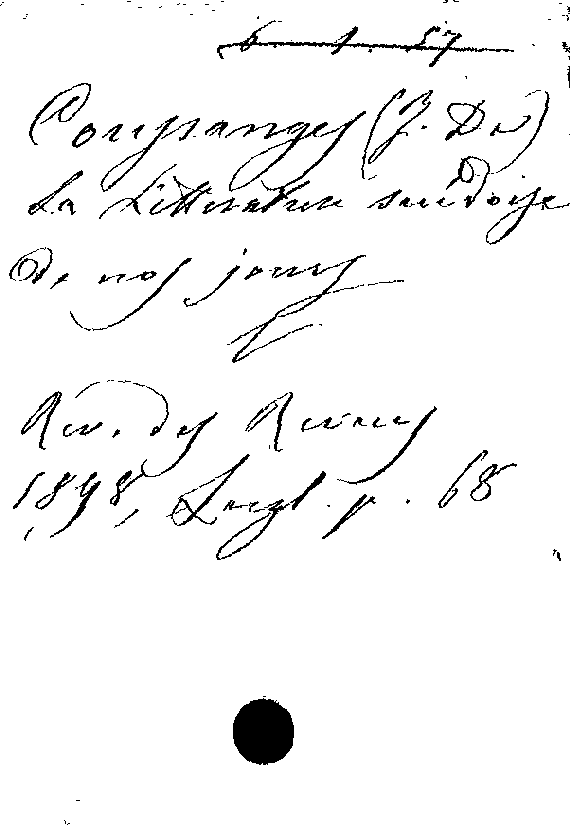 6. 1. 57
Coussanges (J. De)
La Littérature suédoise
de nos jours
Rev. des Revues
1898, p. 68